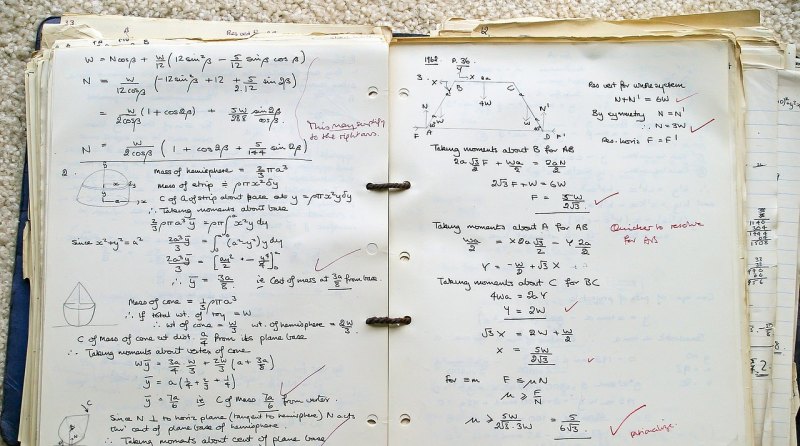 33
W = Ncosβ + W/12 (12 sin²β - 5/12 sinβ cosβ)
N = W/12cosβ (-12sin²β + 12 + 5/2.12 sin2β)
= W/2cosβ (1 + cos2β) + 5W/288 sin2β/cosβ.
This may simplify
to the right ans.
N = W/2cosβ (1 + cos2β + 5/144 sin2β)
2.
Mass of hemisphere = 2/3 πa³
Mass of strip = ρπx²δy
C of G of strip about base at y = ρπx²yδy
∴ Taking moments about base
2/3 ρπa³ȳ = ∫ ρπx²y dy
since x²+y² = a²
2a³ȳ/3 = ∫ (a²-y²)y dy
2a³ȳ/3 = [ay²/2 - y⁴/4]
∴ ȳ = 3a/8 ie Cent of mass at 3a/8 from base.
Mass of cone = 1/3 ρπa³
∴ If total wt. of toy = W
∴ wt of cone = W/3 wt. of hemisphere = 2W/3
C of Mass of cone at dist. a/4 from its plane base
∴ Taking moments about vertex of cone
Wȳ = 3a/4 W/3 + 2W/3 (a + 3a/8)
ȳ = a(1/4 + 2/3 + 1/4)
ȳ = 7a/6 ie C of Mass 7a/6 from vertex.
C
Since N ⊥ to horiz plane (tangent to hemisphere) N acts
thro' cent of plane base of hemisphere.
∴ Taking moments about cent of plane base
1968 P. 36
Y
3. X X 2a
B C
4W
N N'
W W
A D
F F'
Res vert for whole system
N+N' = 6W
By symmetry N = N'
∴ N = 3W
Res. horiz F = F'
Taking moments about B for AB
2a √3/2 F + Wa/2 = 2aN/2
2√3F + W = 6W
F = 5W/2√3
Taking moments about A for AB
Quicker to resolve
for AB
Wa/2 = X 2a√3/2 - Y 2a/2
Y = -W/2 + √3X
Taking moments about C for BC
4Wa = 2aY
Y = 2W
√3X = 2W + W/2
X = 5W/2√3
for =m F ≤ μN
μ ≥ F/N
μ ≥ 5W/2√3.3W = 5/6√3
rationalize.